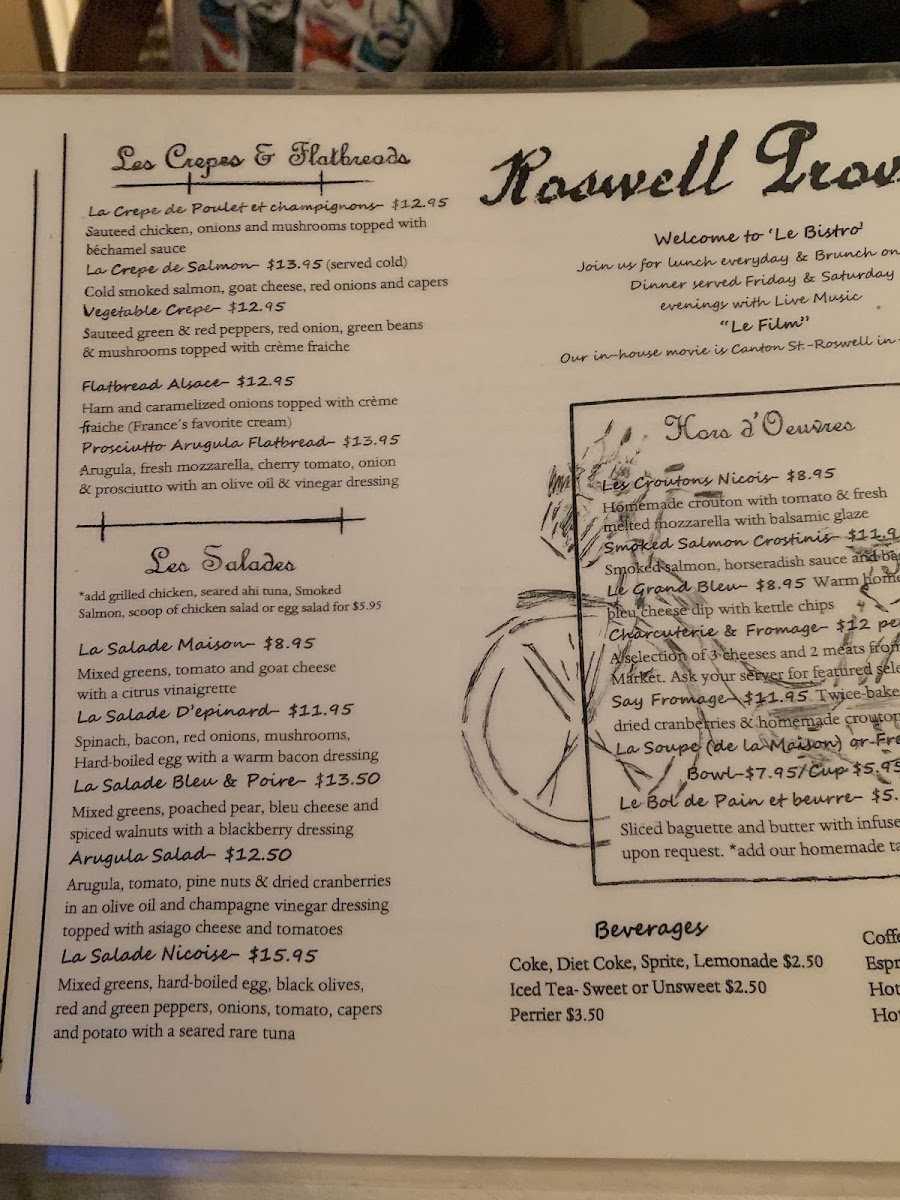 Les Crepes & Flatbreads
La Crepe de Poulet et champignons- $12.95
Sauteed chicken, onions and mushrooms topped with
béchamel sauce
La Crepe de Salmon- $13.95 (served cold)
Cold smoked salmon, goat cheese, red onions and capers
Vegetable Crepe- $12.95
Sauteed green & red peppers, red onion, green beans
& mushrooms topped with crème fraiche
Flatbread Alsace- $12.95
Ham and caramelized onions topped with crème
fraiche (France's favorite cream)
Prosciutto Arugula Flatbread- $13.95
Arugula, fresh mozzarella, cherry tomato, onion
& prosciutto with an olive oil & vinegar dressing
Les Salades
*add grilled chicken, seared ahi tuna, Smoked
Salmon, scoop of chicken salad or egg salad for $5.95
La Salade Maison- $8.95
Mixed greens, tomato and goat cheese
with a citrus vinaigrette
La Salade D'epinard- $11.95
Spinach, bacon, red onions, mushrooms,
Hard-boiled egg with a warm bacon dressing
La Salade Bleu & Poire- $13.50
Mixed greens, poached pear, bleu cheese and
spiced walnuts with a blackberry dressing
Arugula Salad- $12.50
Arugula, tomato, pine nuts & dried cranberries
in an olive oil and champagne vinegar dressing
topped with asiago cheese and tomatoes
La Salade Nicoise- $15.95
Mixed greens, hard-boiled egg, black olives,
red and green peppers, onions, tomato, capers
and potato with a seared rare tuna
Roswell Prov
Welcome to 'Le Bistro'
Join us for lunch everyday & Brunch on
Dinner served Friday & Saturday
evenings with Live Music
"Le Film"
Our in-house movie is Canton St.-Roswell in
Hors d'Oeuvres
Les Croutons Nicois- $8.95
Homemade crouton with tomato & fresh
melted mozzarella with balsamic glaze
Smoked Salmon Crostinis- $11.9
Smoked salmon, horseradish sauce and ba
Le Grand Bleu- $8.95 Warm home
bleu cheese dip with kettle chips
Charcuterie & Fromage- $12 pe
A selection of 3 cheeses and 2 meats from
Market. Ask your server for featured sele
Say Fromage- $11.95 Twice-bake
dried cranberries & homemade crouton
La Soupe (de la Maison) or Fre
Bowl-$7.95/Cup $5.95
Le Bol de Pain et beurre- $5.
Sliced baguette and butter with infuse
upon request. *add our homemade ta
Beverages
Coke, Diet Coke, Sprite, Lemonade $2.50
Iced Tea- Sweet or Unsweet $2.50
Perrier $3.50
Coffe
Espr
Hot
Ho